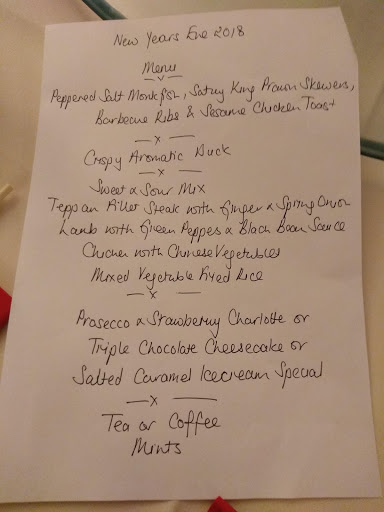 New Years Eve 2018
Menu
Peppered Salt Monkfish, Satay King Prawn Skewers,
Barbecue Ribs & Sesame Chicken Toast
— x —
Crispy Aromatic Duck
— x —
Sweet & Sour Mix
Teppan Fillet Steak with Ginger & Spring Onion
Lamb with Green Peppers & Black Bean Sauce
Chicken with Chinese Vegetables
Mixed Vegetable Fried Rice
— x —
Prosecco & Strawberry Charlotte or
Triple Chocolate Cheesecake or
Salted Caramel Icecream Special
— x —
Tea or Coffee
Mints